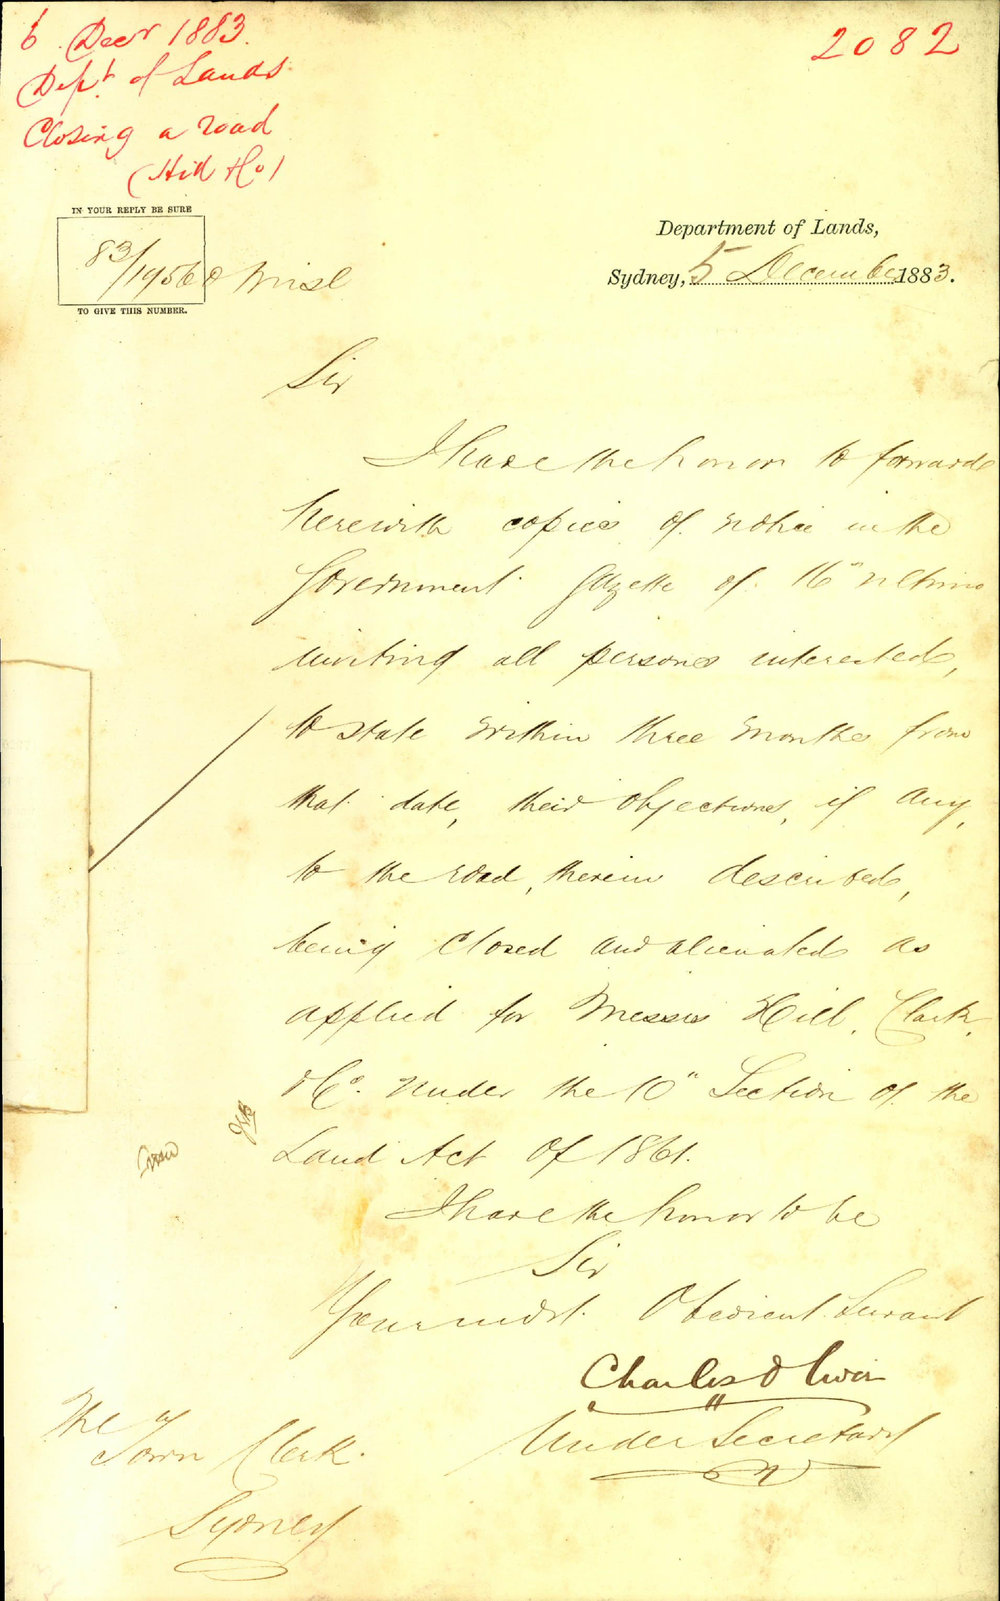 6 Decr 1883.
2082
Dept. of Lands
Closing a road
(Hill & Co)
IN YOUR REPLY BE SURE
83/19560 Misl
TO GIVE THIS NUMBER.
Department of Lands,
Sydney, 5 December 1883.
Sir
I have the honor to forward
herewith copies of notice in the
Government Gazette of 16" ultimo
inviting all persons interested,
to state within three months from
that date, their objections, if any,
to the road, therein described,
being closed and alienated as
applied for Messrs Hill, Clark,
& Co. under the 10" Section of the
Land Act of 1861.
I have the honor to be
Sir
Your most Obedient Servant
Charles Oliver
Under Secretary
The
Town Clerk.
Sydney